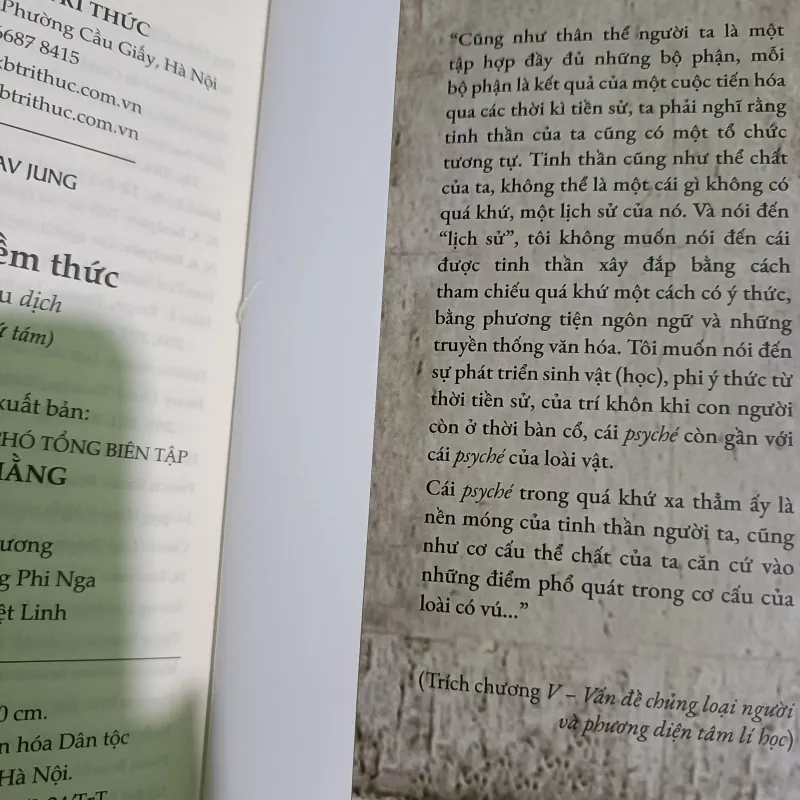 TRI THỨC
Phường Cầu Giấy, Hà Nội
6687 8415
btrithuc.com.vn
btrithuc.com.vn
AV JUNG
ềm thức
u dịch
ứ tám)
xuất bản:
PHÓ TỔNG BIÊN TẬP
HẰNG
ương
g Phi Nga
ệt Linh
0 cm.
n hóa Dân tộc
Hà Nội.
“Cũng như thân thể người ta là một
tập hợp đầy đủ những bộ phận, mỗi
bộ phận là kết quả của một cuộc tiến hóa
qua các thời kì tiền sử, ta phải nghĩ rằng
tinh thần của ta cũng có một tổ chức
tương tự. Tinh thần cũng như thể chất
của ta, không thể là một cái gì không có
quá khứ, một lịch sử của nó. Và nói đến
“lịch sử”, tôi không muốn nói đến cái
được tinh thần xây đắp bằng cách
tham chiếu quá khứ một cách có ý thức,
bằng phương tiện ngôn ngữ và những
truyền thống văn hóa. Tôi muốn nói đến
sự phát triển sinh vật (học), phi ý thức từ
thời tiền sử, của trí khôn khi con người
còn ở thời bàn cổ, cái psyché còn gần với
cái psyché của loài vật.
Cái psyché trong quá khứ xa thẳm ấy là
nền móng của tinh thần người ta, cũng
như cơ cấu thể chất của ta căn cứ vào
những điểm phổ quát trong cơ cấu của
loài có vú...”
(Trích chương V – Vấn đề chủng loại người
và phương diện tâm lí học)